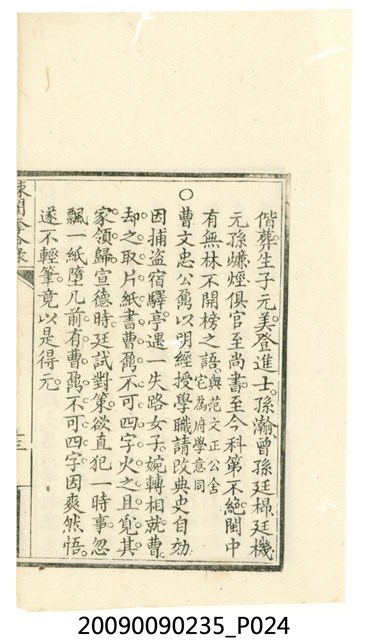 偕葬生子元美登進士孫瀚曾孫廷棉廷機
元孫㷿烴俱官至尚書至今科第不絕閩中
有無林不開榜之語與范文正公舍宅為府學意同
○曹文忠公鼐以明經授學職請改典史自効
因捕盜宿驛亭遇一失路女子婉轉相就曹
却之取片紙書曹鼐不可四字火之且覓其
家領歸宣德時廷試對策欲直犯一時事忽
飄一紙墮几前有曹鼐不可四字因爽然悟
遂不輕筆竟以是得元
20090090235_P024